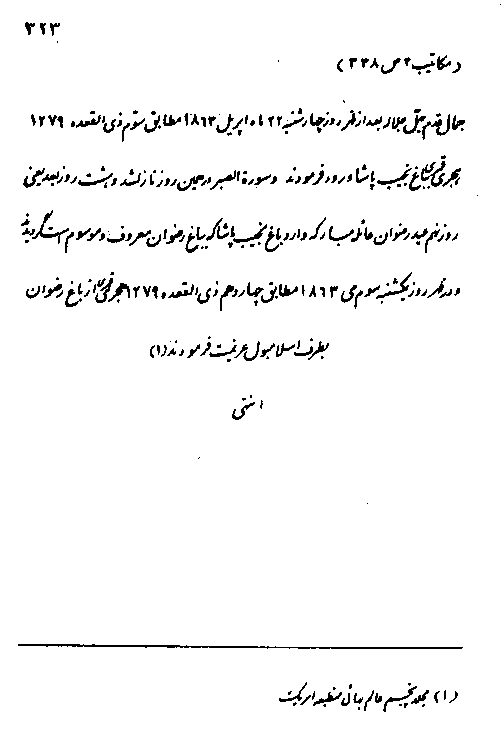 ۳۲۳
( مکاتیب ۲ ص ۳۳۸ )
جمال قدم جلّ جلاله بعد از ظهر روز چهارشنبه ۲۲ ماه اپریل ۱۸۶۳ مطابق سوّم ذی القعده ۱۲۷۹
هجری قمری بباغ نجیب پاشا ورود فرمودند و سورة الصبر در همین روز نازل شد و هشت روز بعد یعنی
روز نهم عید رضوان عائله مبارکه وارد باغ نجیب پاشا که بباغ رضوان معروف و موسوم است گردیدند
و در ظهر روز یکشنبه سوم می ۱۸۶۳ مطابق چهاردهم ذی القعده ۱۲۷۹ هجری قمری از باغ رضوان
بطرف اسلامبول عزیمت فرمودند (۱)
انتهی
(۱) مجلد پنجم عالم بهائی منطبعه امریکا